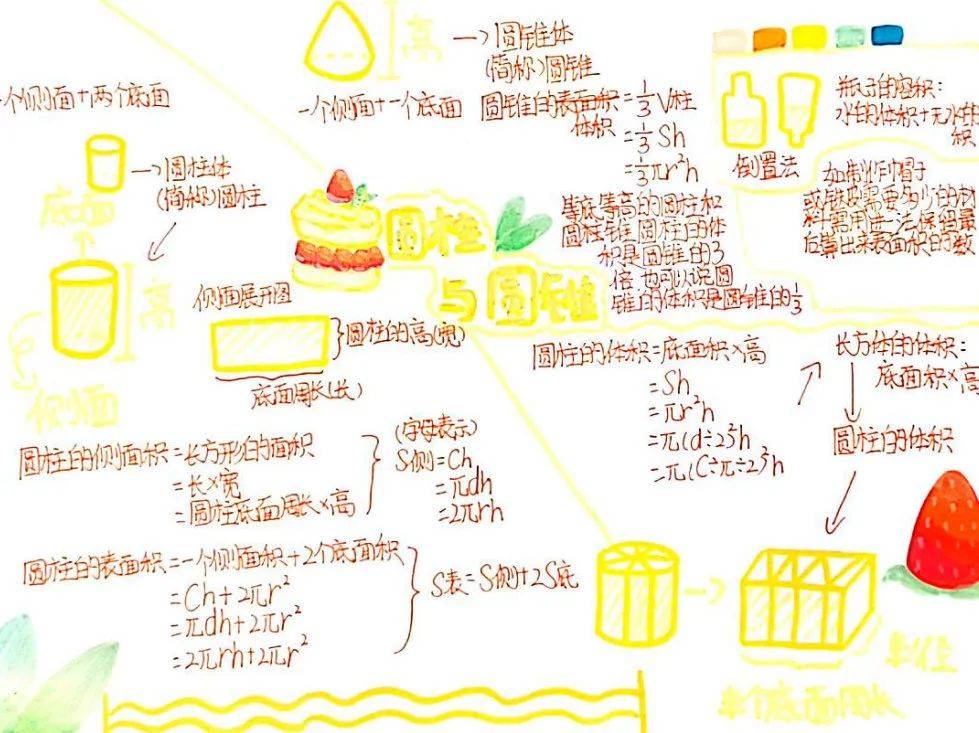 高
→圆锥体
(简称)圆锥
一个侧面+两个底面
一个侧面+一个底面
→圆柱体
(简称)圆柱
底面
高
侧面
圆锥的表面积
体积
=1/3V柱
=1/3Sh
=1/3πr²h
瓶子的容积:
水的体积+无水的
积
倒置法
如制作帽子
或铁皮需要多少的材
料需用进一法保留最
后算出来表面积的数
圆柱
与圆锥
等底等高的圆柱和
圆柱锥 圆柱的体
积是圆锥的3
倍 也可以说圆
锥的体积是圆锥的1/3
侧面展开图
}圆柱的高(宽)
底面周长(长)
圆柱的体积=底面积×高
=Sh
=πr²h
=π(d÷2)²h
=π(C÷π÷2)²h
长方体的体积:
底面积×高
圆柱的体积
圆柱的侧面积=长方形的面积
=长×宽
=圆柱底面周长×高
(字母表示)
S侧=Ch
=πdh
=2πrh
圆柱的表面积=一个侧面积+2个底面积
=Ch+2πr²
=πdh+2πr²
=2πrh+2πr²
S表=S侧+2S底
半径
半个底面周长